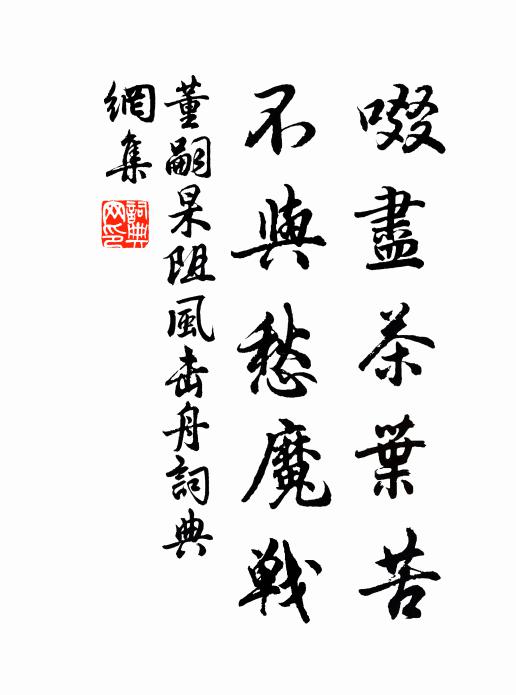 啜盡茶葉苦
不與愁魔戰
董嗣杲阻風击舟詞典
網集
詞典
网印